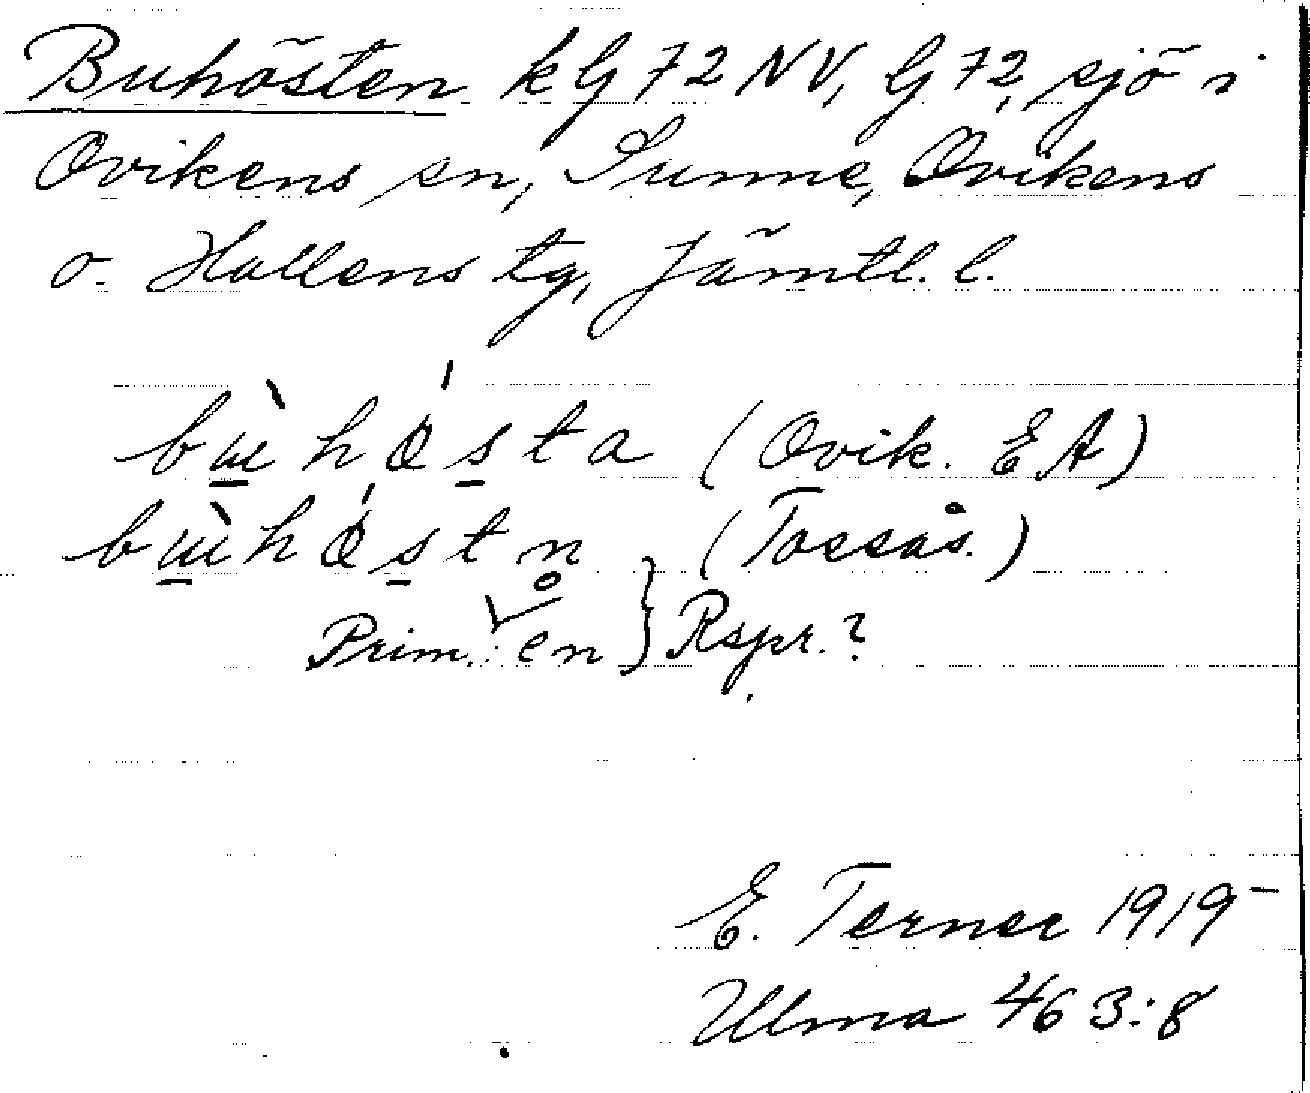 Buhösten kG 72 NV, G 72, sjö i
Ovikens sn, Sunne, Ovikens
o. Hallens tg, Jämtl. l.
bɯ̀hǿsta (Ovik. EA)
bɯ̀hǿstn̥ (Tossås.)
Prim. en } Rspr.?
E. Terner 1919-
Ulma 463:8